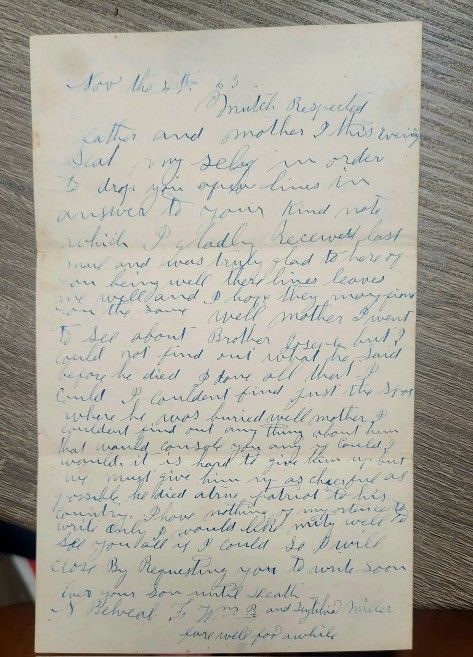 Nov the 4th 63
Mutch Respected
father and mother I this Evening
Seat my self in order
to drop you a few lines in
answer to your kind note
which I gladly Received last
mail and was truly glad to here of
you being well these lines leaves
me well and I hope they may find
you the same Well mother I went
to see about Brother Joseph but I
could not find out what he said
before he died I done all that I
could I couldent find just the spot
where he was buried well mother I
couldent find out any thing about him
that would console you any if I could I
would. it is hard to give him up but
we must give him up as cheerful as
possible he died a true patriot to his
country. I have nothing of
write only I would like mity well to
see you all if I could So I will
close By Requesting you to write soon
Ever your son until death
To Wm R and
fare well for awhile